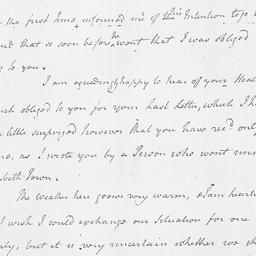 the first time, informed me of their Intention to go
and that so soon before he went that I was obliged
to you.
I am exceedingly happy to hear of your Heal
much obliged to you for your Last Letter, which I h
a little surprized however that you have recd only
one, as I wrote you by a Person who went imm
abeth Town.
The weather here grows very warm, & I am heartil
I wish I could exchange our Situation for one
only, but it is very uncertain whether we sh